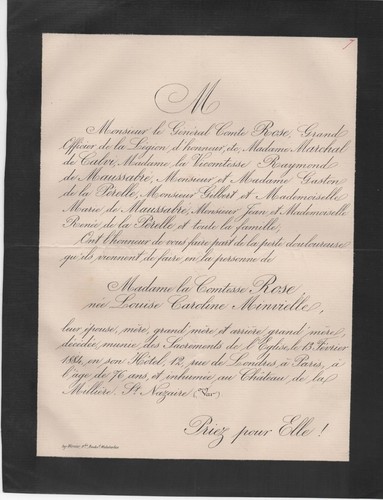 M
Monsieur le Général Comte Rose, Grand
Officier de la Légion d'honneur, de Madame Maréchal
de Calvi, Madame la Vicomtesse Raymond
de Maussabré, Monsieur et Madame Gaston
de la Pérelle, Monsieur Gilbert et Mademoiselle
Marie de Maussabré, Monsieur Jean et Mademoiselle
Renée de la Pérelle et toute la famille,
Ont l'honneur de vous faire part de la perte douloureuse
qu'ils viennent de faire en la personne de
Madame la Comtesse Rose,
née Louise Caroline Minvielle,
leur épouse, mère, grand'mère et arrière grand'mère,
décédée, munie des Sacrements de l'Eglise, le 13 Février
1884, en son Hôtel, 12, rue de Londres, à Paris, à
l'âge de 76 ans, et inhumée au Château de la
Millière, St. Nazaire (Var)
Priez pour Elle!